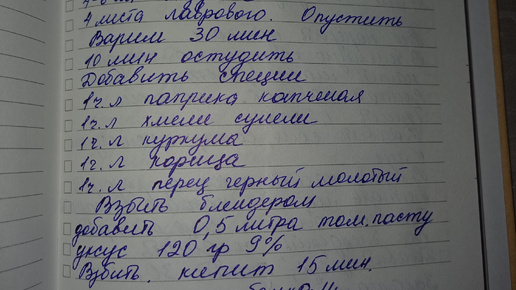 4 листа лаврового. Опустить
Варим 30 мин
10 мин остудить
Добавить специи
1 ч. л паприка капченая
1 ч. л хмели сунели
1 ч. л куркума
1 ч. л корица
1 ч. л перец черный молотый
Взбить блендером
добавить 0,5 литра том. пасту
уксус 120 гр 9%
Взбить. кипит 15 мин.